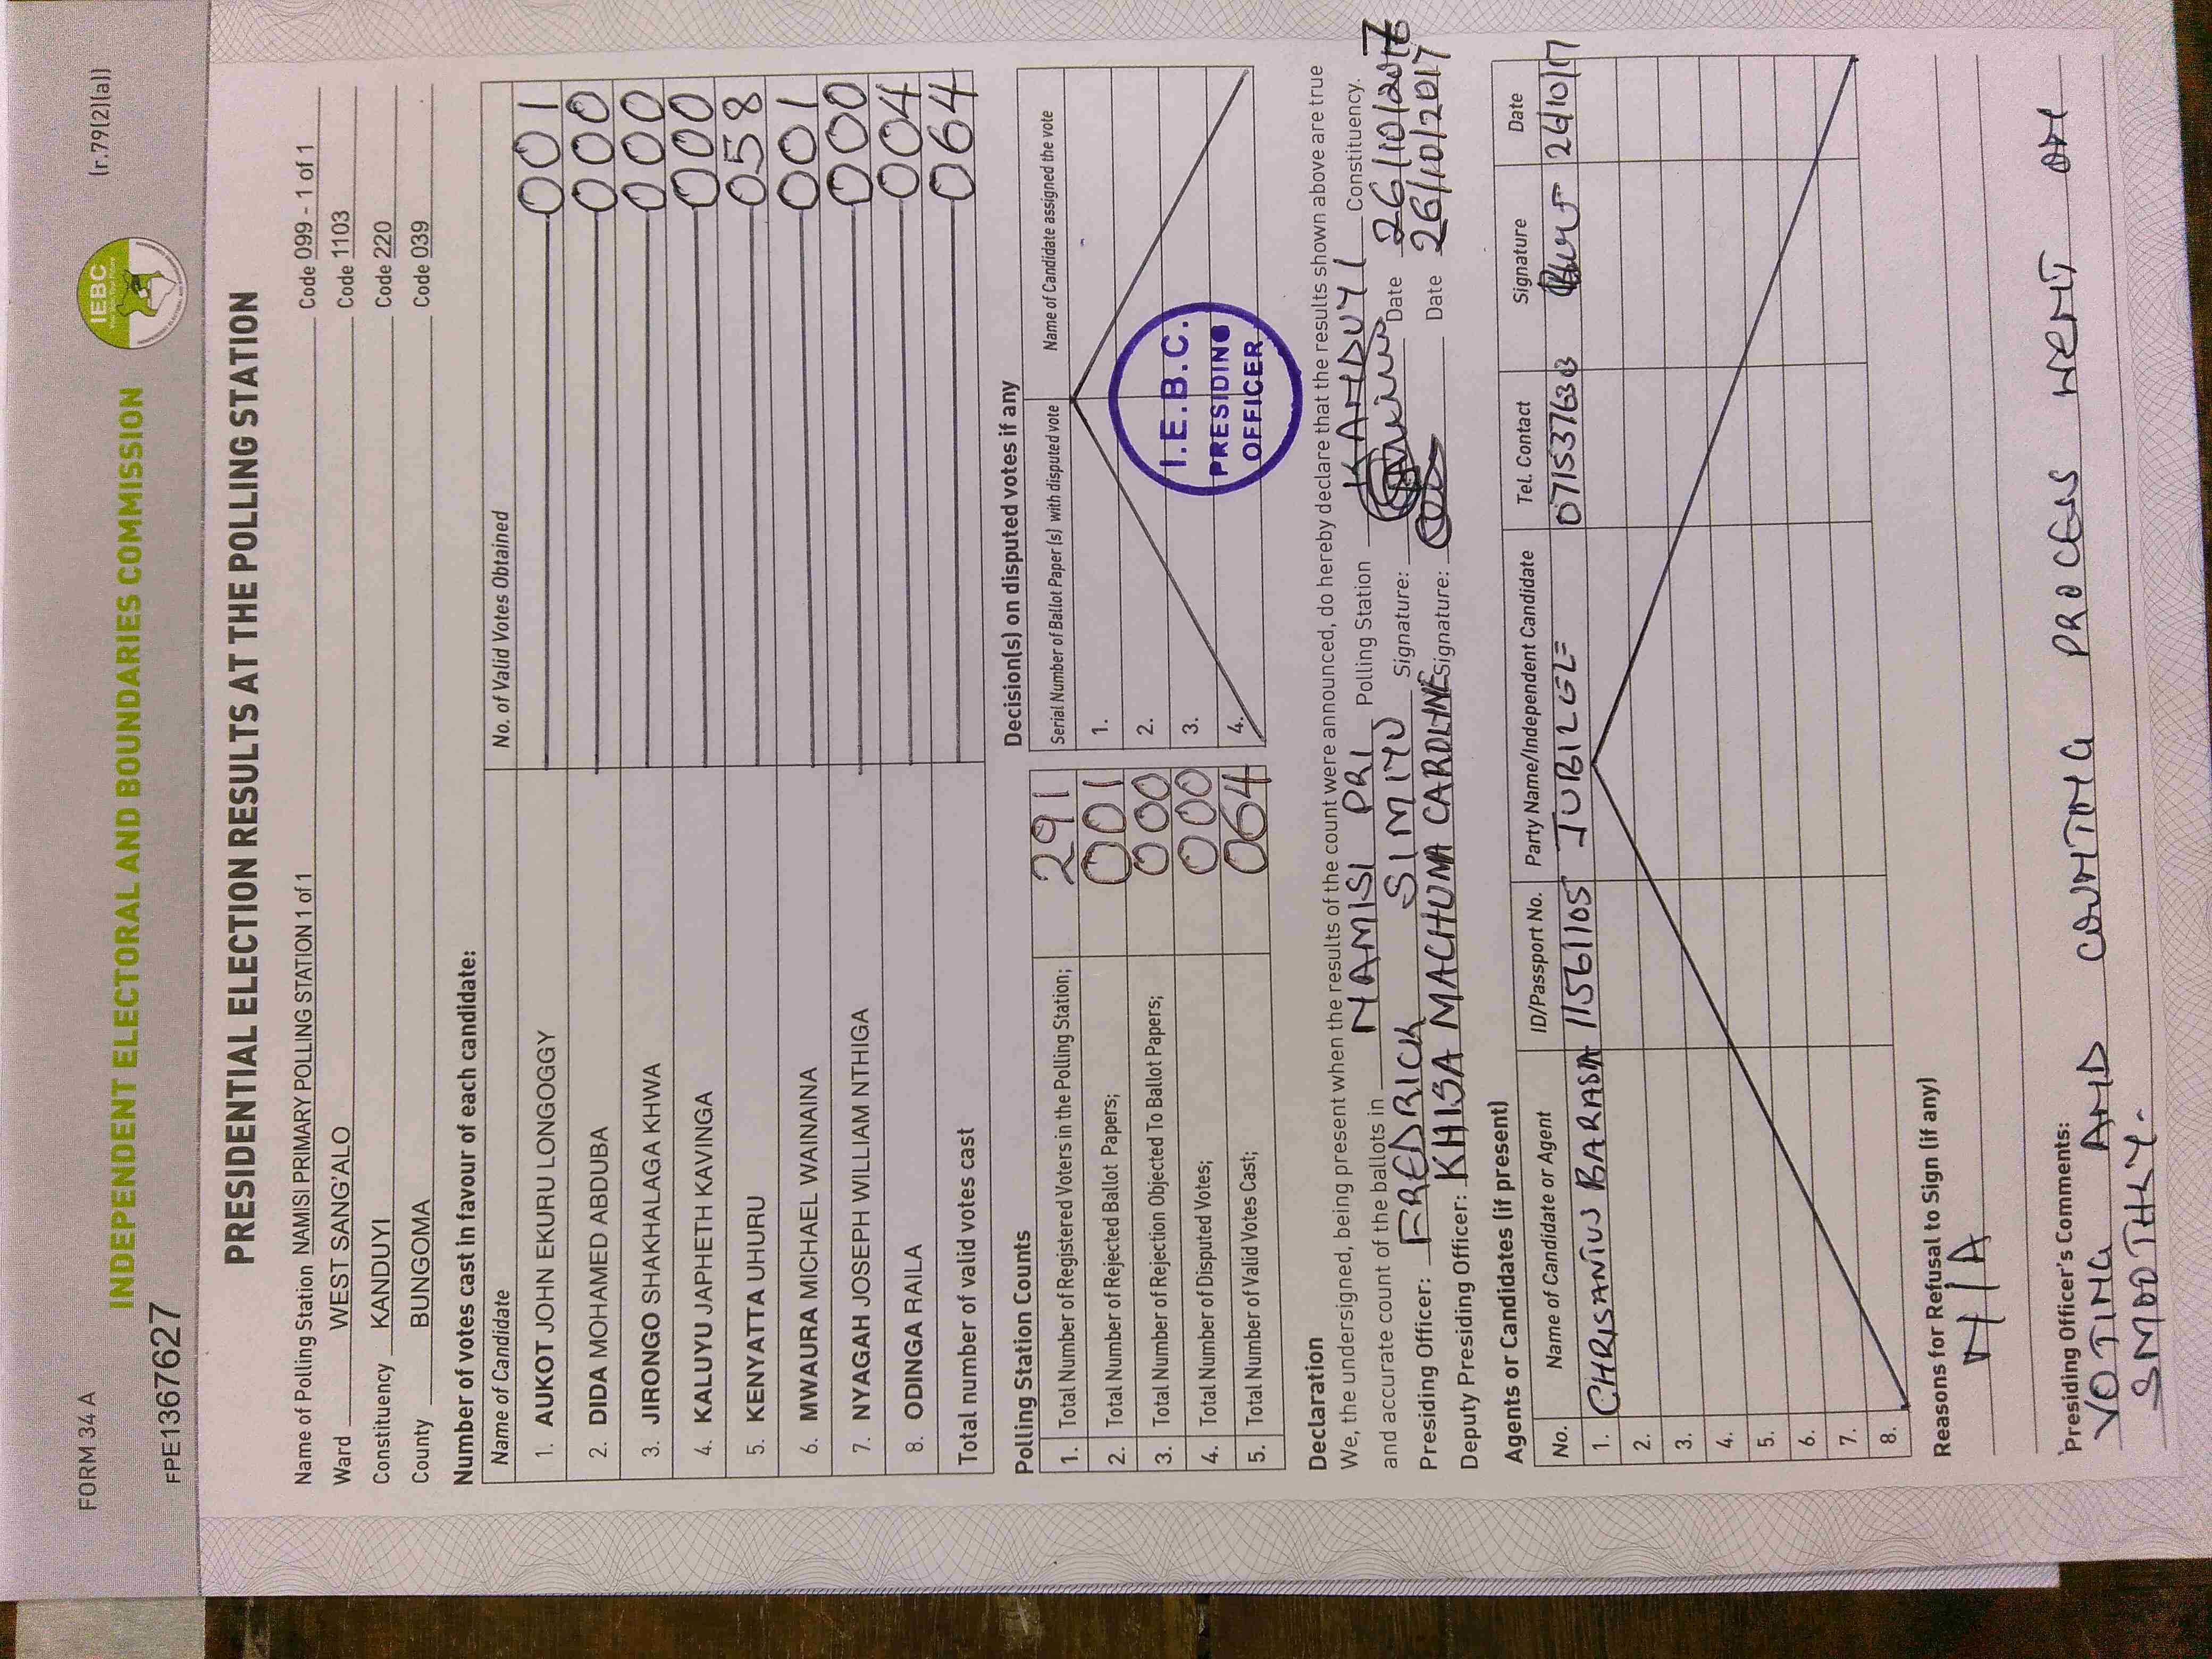 FORM 34 A
(r.79(2)(a))
IEBC
INDEPENDENT ELECTORAL AND BOUNDARIES COMMISSION
FPE1367627
PRESIDENTIAL ELECTION RESULTS AT THE POLLING STATION
Name of Polling Station NAMISI PRIMARY POLLING STATION 1 of 1 Code 099 - 1 of 1
Ward WEST SANG'ALO Code 1103
Constituency KANDUYI Code 220
County BUNGOMA Code 039
Number of votes cast in favour of each candidate:
Name of Candidate No. of Valid Votes Obtained
1. AUKOT JOHN EKURU LONGOGGY 001
2. DIDA MOHAMED ABDUBA 000
3. JIRONGO SHAKHALAGA KHWA 000
4. KALUYU JAPHETH KAVINGA 000
5. KENYATTA UHURU 058
6. MWAURA MICHAEL WAINAINA 001
7. NYAGAH JOSEPH WILLIAM NTHIGA 000
8. ODINGA RAILA 004
Total number of valid votes cast 064
Polling Station Counts
1. Total Number of Registered Voters in the Polling Station; 291
2. Total Number of Rejected Ballot Papers; 001
3. Total Number of Rejection Objected To Ballot Papers; 000
4. Total Number of Disputed Votes; 000
5. Total Number of Valid Votes Cast; 064
Decision(s) on disputed votes if any
Serial Number of Ballot Paper (s) with disputed vote Name of Candidate assigned the vote
1.
2.
3.
4.
I.E.B.C.
PRESIDING
OFFICER
Declaration
We, the undersigned, being present when the results of the count were announced, do hereby declare that the results shown above are true
and accurate count of the ballots in NAMISI PRI Polling Station KANDUYI Constituency.
Presiding Officer: FREDRICK SIMIYU Signature: Date 26/10/2017
Deputy Presiding Officer: KHISA MACHUMA CAROLINE Signature: Date 26/10/2017
Agents or Candidates (if present)
No. Name of Candidate or Agent ID/Passport No. Party Name/Independent Candidate Tel. Contact Signature Date
1. CHRISANTUS BARASA 11561105 JUBILEE 26/10/17
2.
3.
4.
5.
6.
7.
8.
Reasons for Refusal to Sign (if any)
N/A
Presiding Officer's Comments:
VOTING AND COUNTING PROCESS WENT ON
SMOOTHLY.